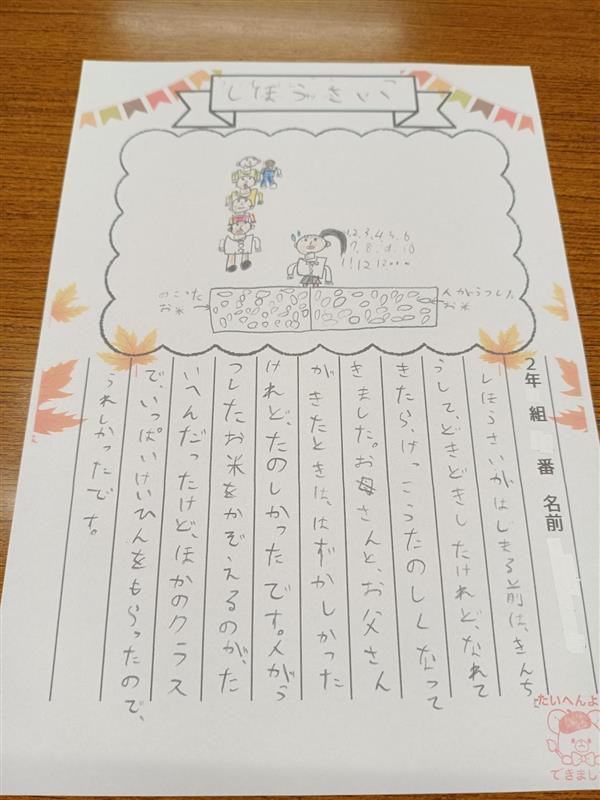 しほうさい
1.2.3.4.5.6
7.8.9.10
11 12
のこった
お米
人がうつした
お米
2年 組 番 名前
しほうさいがはじまる前は、きんちょ
うして、どきどきしたけれど、なれて
きたら、けっこうたのしくなって
きました。お母さんと、お父さん
がきたときは、はずかしかった
けれど、たのしかったです。人がう
つしたお米をかぞえるのが、た
いへんだったけど、ほかのクラス
で、いっぱいけいひんをもらったので、
うれしかったです。
たいへんよ
できまし